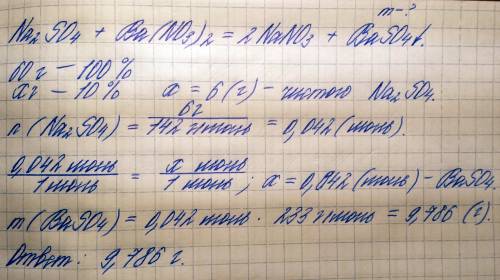 m-?
Na₂SO₄ + Ba(NO₃)₂ = 2 NaNO₃ + BaSO₄↓.
60 г – 100 %
x г – 10 % x = 6 (г) – чистого Na₂SO₄.
n (Na₂SO₄) = 6г / 142 г/моль = 0,042 (моль).
0,042 моль / 1 моль = x моль / 1 моль ; x = 0,042 (моль) – BaSO₄
m (BaSO₄) = 0,042 моль · 233 г/моль = 9,786 (г).
Ответ: 9,786 г.